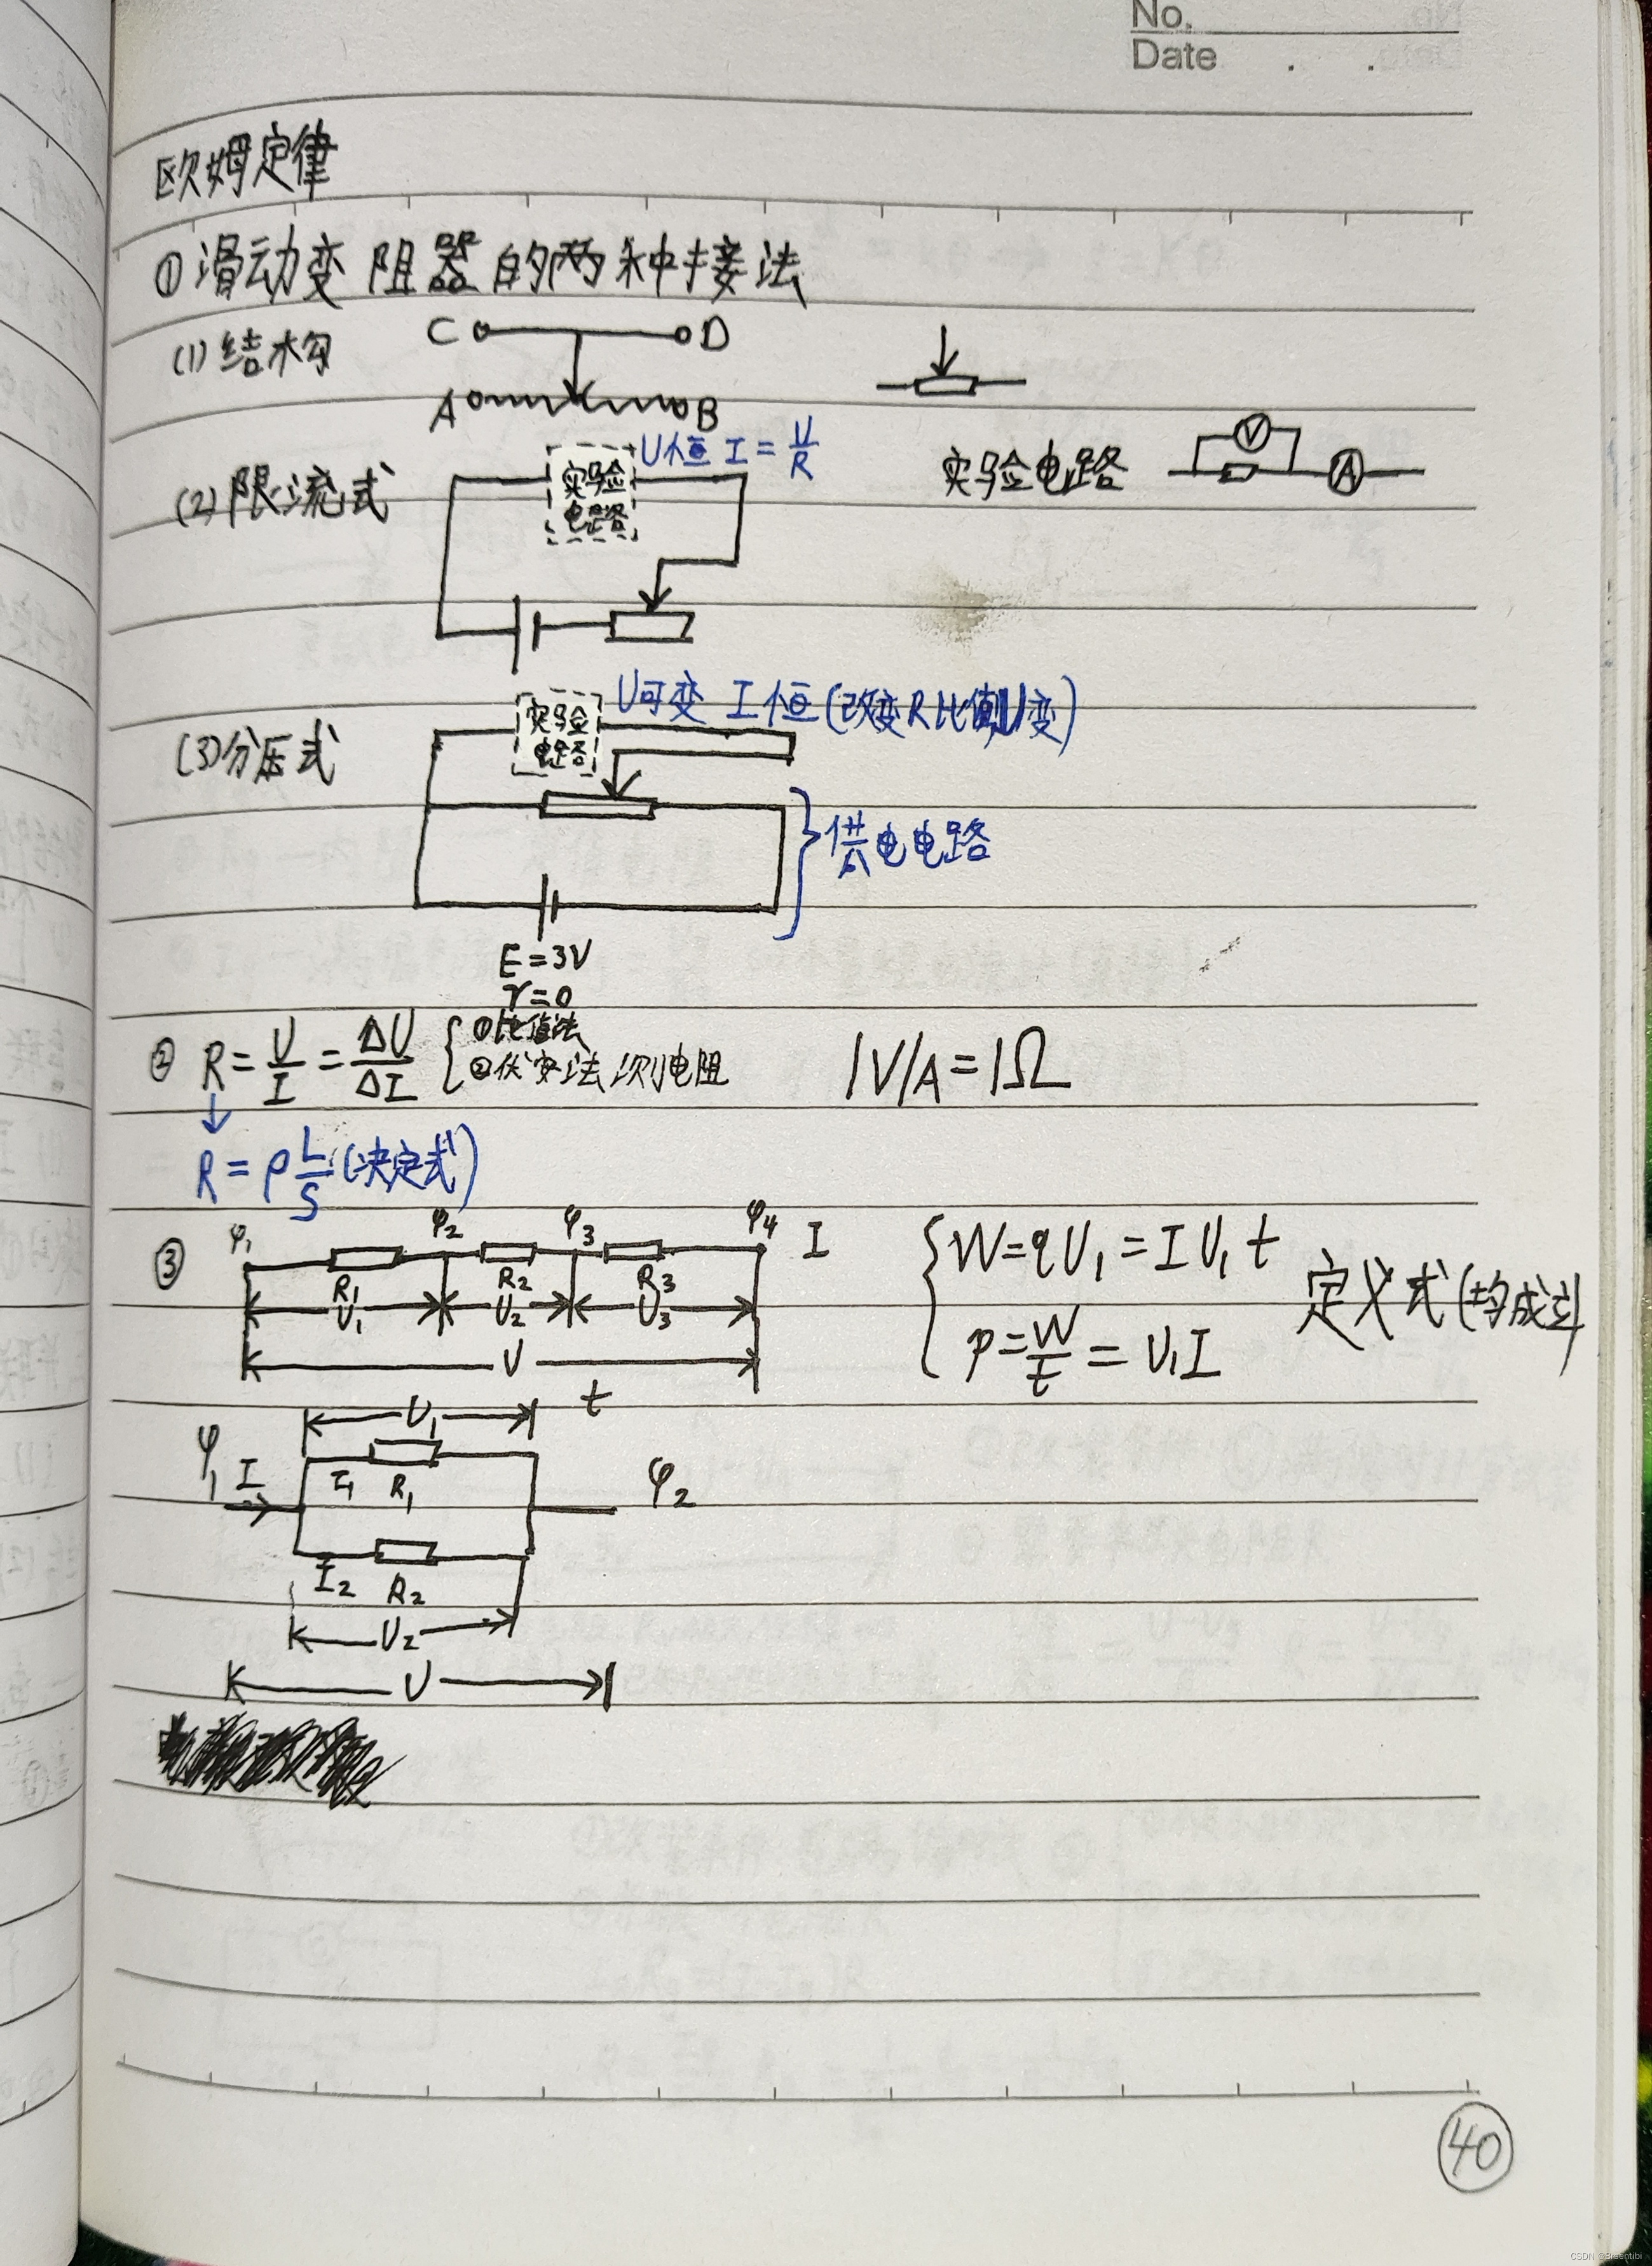 No.
Date . .
欧姆定律
①滑动变阻器的两种接法
(1)结构 C D
A B
(2)限流式 实验电路 U恒 I=U/R 实验电路 V A
(3)分压式 实验电路 U可变 I恒(改变R比例U变)
供电电路
E=3V
r=0
② R=U/I=ΔU/ΔI {①比值法 ②伏安法测电阻 1V/A=1Ω
↓
R=ρL/S(决定式)
③ φ1 φ2 φ3 φ4 I
R1 R2 R3
U1 U2 U3
U
t
{W=qU1=IU1t
P=W/t=U1I
定义式(均成立
U1
φ1 I I1 R1 φ2
I2 R2
U2
U
40
CSDN @Braentibi